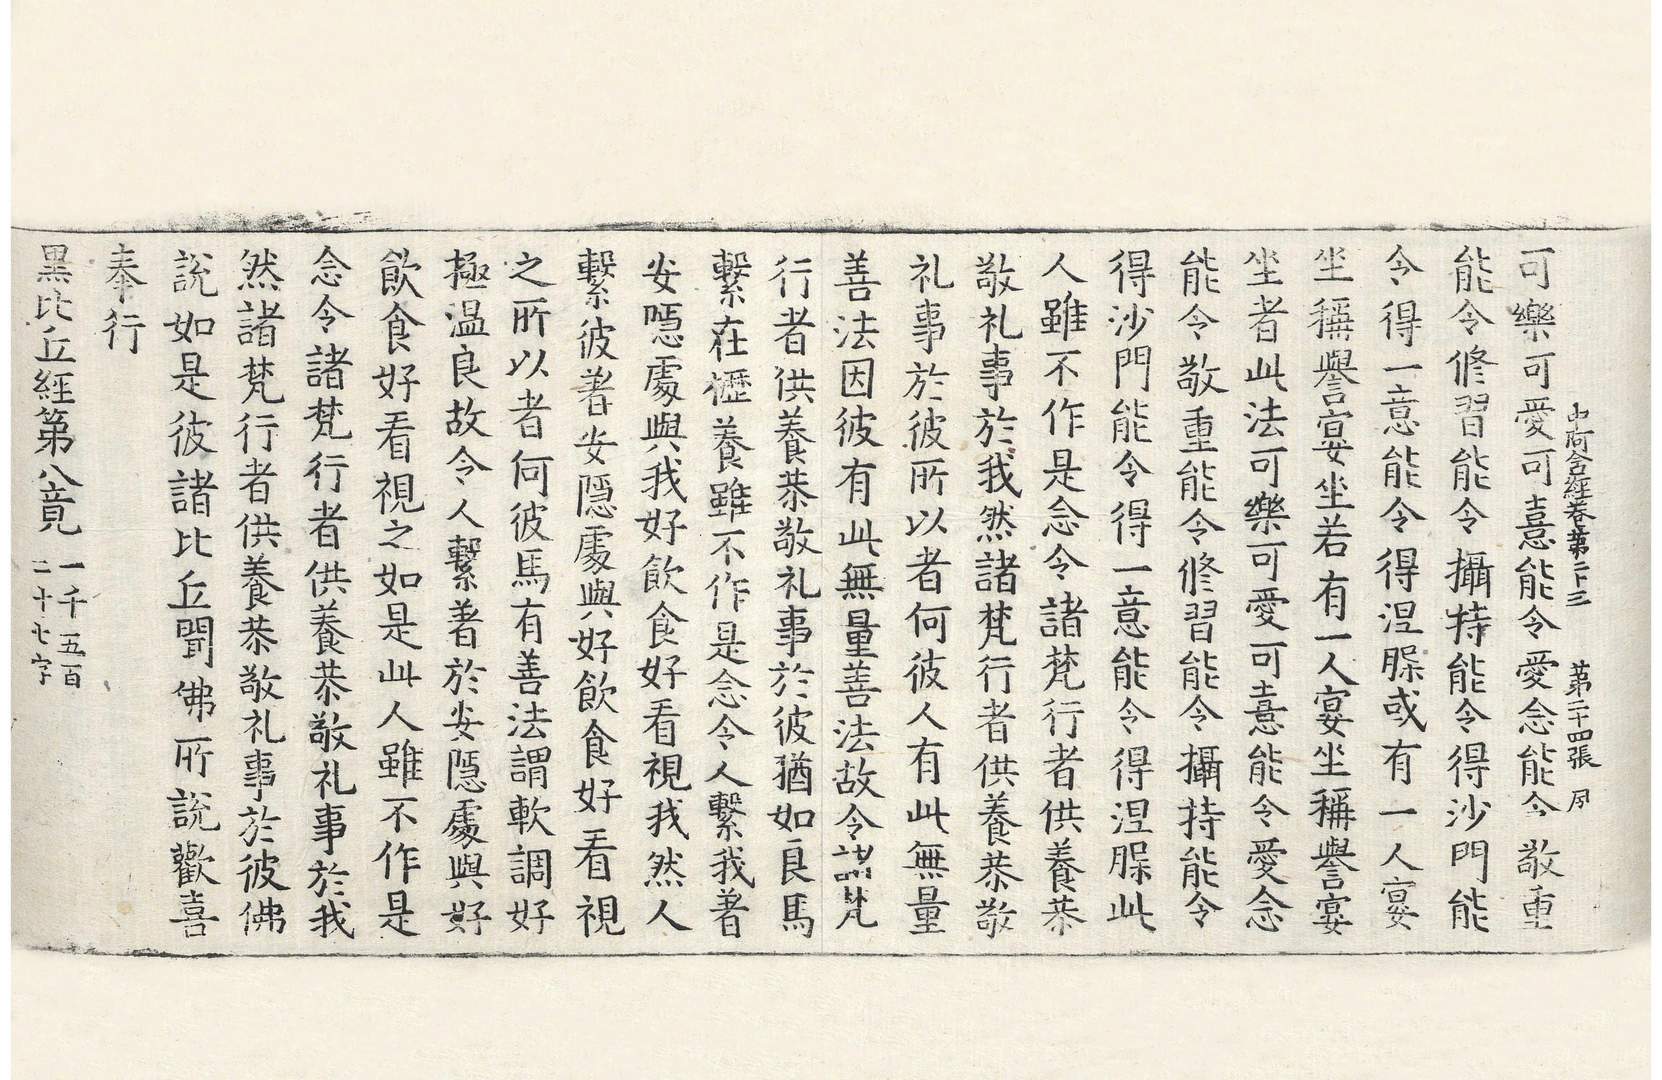 中阿含經卷第二十三　第二十四張　夙
可樂可愛可憙能令愛念能令敬重
能令修習能令攝持能令得沙門能
令得一意能令得涅脲或有一人宴
坐稱譽宴坐若有一人宴坐稱譽宴
坐者此法可樂可愛可憙能令愛念
能令敬重能令修習能令攝持能令
得沙門能令得一意能令得涅脲此
人雖不作是念令諸梵行者供養恭
敬礼事於我然諸梵行者供養恭敬
礼事於彼所以者何彼人有此無量
善法因彼有此無量善法故令諸梵
行者供養恭敬礼事於彼猶如良馬
繫在櫪養雖不作是念令人繫我著
安隱處與我好飲食好看視我然人
繫彼著安隱處與好飲食好看視
之所以者何彼馬有善法謂軟調好
極温良故令人繫著於安隱處與好
飲食好看視之如是此人雖不作是
念令諸梵行者供養恭敬礼事於我
然諸梵行者供養恭敬礼事於彼佛
說如是彼諸比丘聞佛所說歡喜
奉行
黑比丘經第八竟　一千五百
二十七字